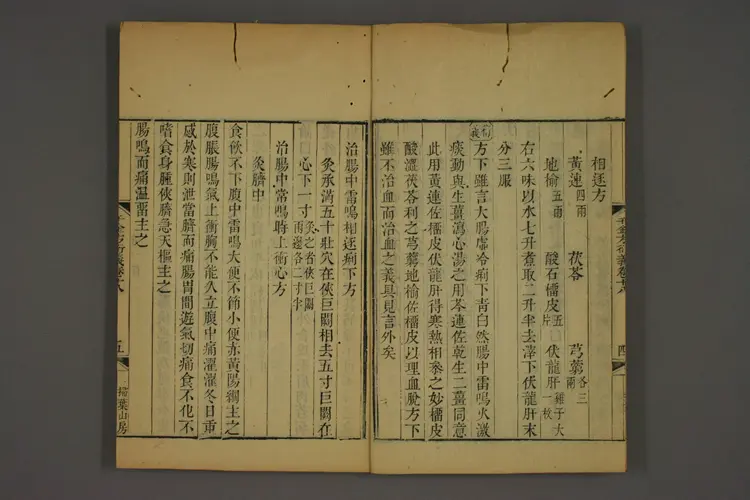 相逐方
黃連四兩 茯苓 芎藭各三兩
地榆五兩 酸石榴皮五片 伏龍肝雞子大一枚
右六味以水七升煮取二升半去滓下伏龍肝末
分三服
衍義
方下雖言大腸虛冷痢下靑白然腸中雷鳴火激
痰動與生薑瀉心湯之用芩連佐乾生二薑同意
此用黃連佐榴皮伏龍肝得寒熱相參之妙榴皮
酸澀茯苓利之芎藭地榆佐榴皮以理血脫方下
雖不治血而治血之義具見言外矣
千金方衍義卷十八
四
治腸中雷鳴相逐痢下方
灸承滿五十壯穴在俠巨闕相去五寸巨闕在
心下一寸灸之者俠巨闕兩邊各二寸半
治腸中常鳴時上衝心方
灸臍中
食飲不下腹中雷鳴大便不節小便赤黃陽綱主之
腹脹腸鳴氣上衝胸不能久立腹中痛濯濯冬日重
感於寒則泄當臍而痛腸胃間遊氣切痛食不化不
嗜食身腫俠臍急天樞主之
腸鳴而痛溫畱主之
五
掃葉山房